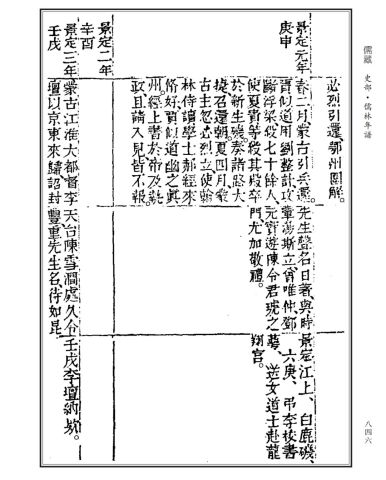 儒藏 史部・儒林年譜
八四六
必烈引還鄂州圍解。
景定元年
庚申
春二月蒙古引兵還。
賈似道用劉整計攻
斷浮梁殺七十餘人、
使夏貴等殺其殿卒
於新生磯奏諸路大
捷召還朝夏四月蒙
古主忽必烈立使翰
林侍讀學士郝經來
脩好賈似道幽之眞
州經上書於帝及執
政且請入見皆不報
先生聲名日著、與時
輩蕩斯立、曾唯仲、鄧
元實遊陳令君琥之
門、尤加敬禮。
景定江上、白鹿磯、
六庚、弔李校書
墓、送女道士赴龍
翔宮。
景定二年
辛酉
景定三年
壬戌
蒙古江淮大都督李
璮以京東來歸詔封
天台陳雪澗處久令
豐重先生名、待如昆
壬戌李璮納欵。